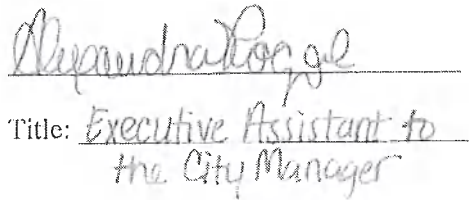 Alexandra
Title: Executive Assistant to
the City Manager